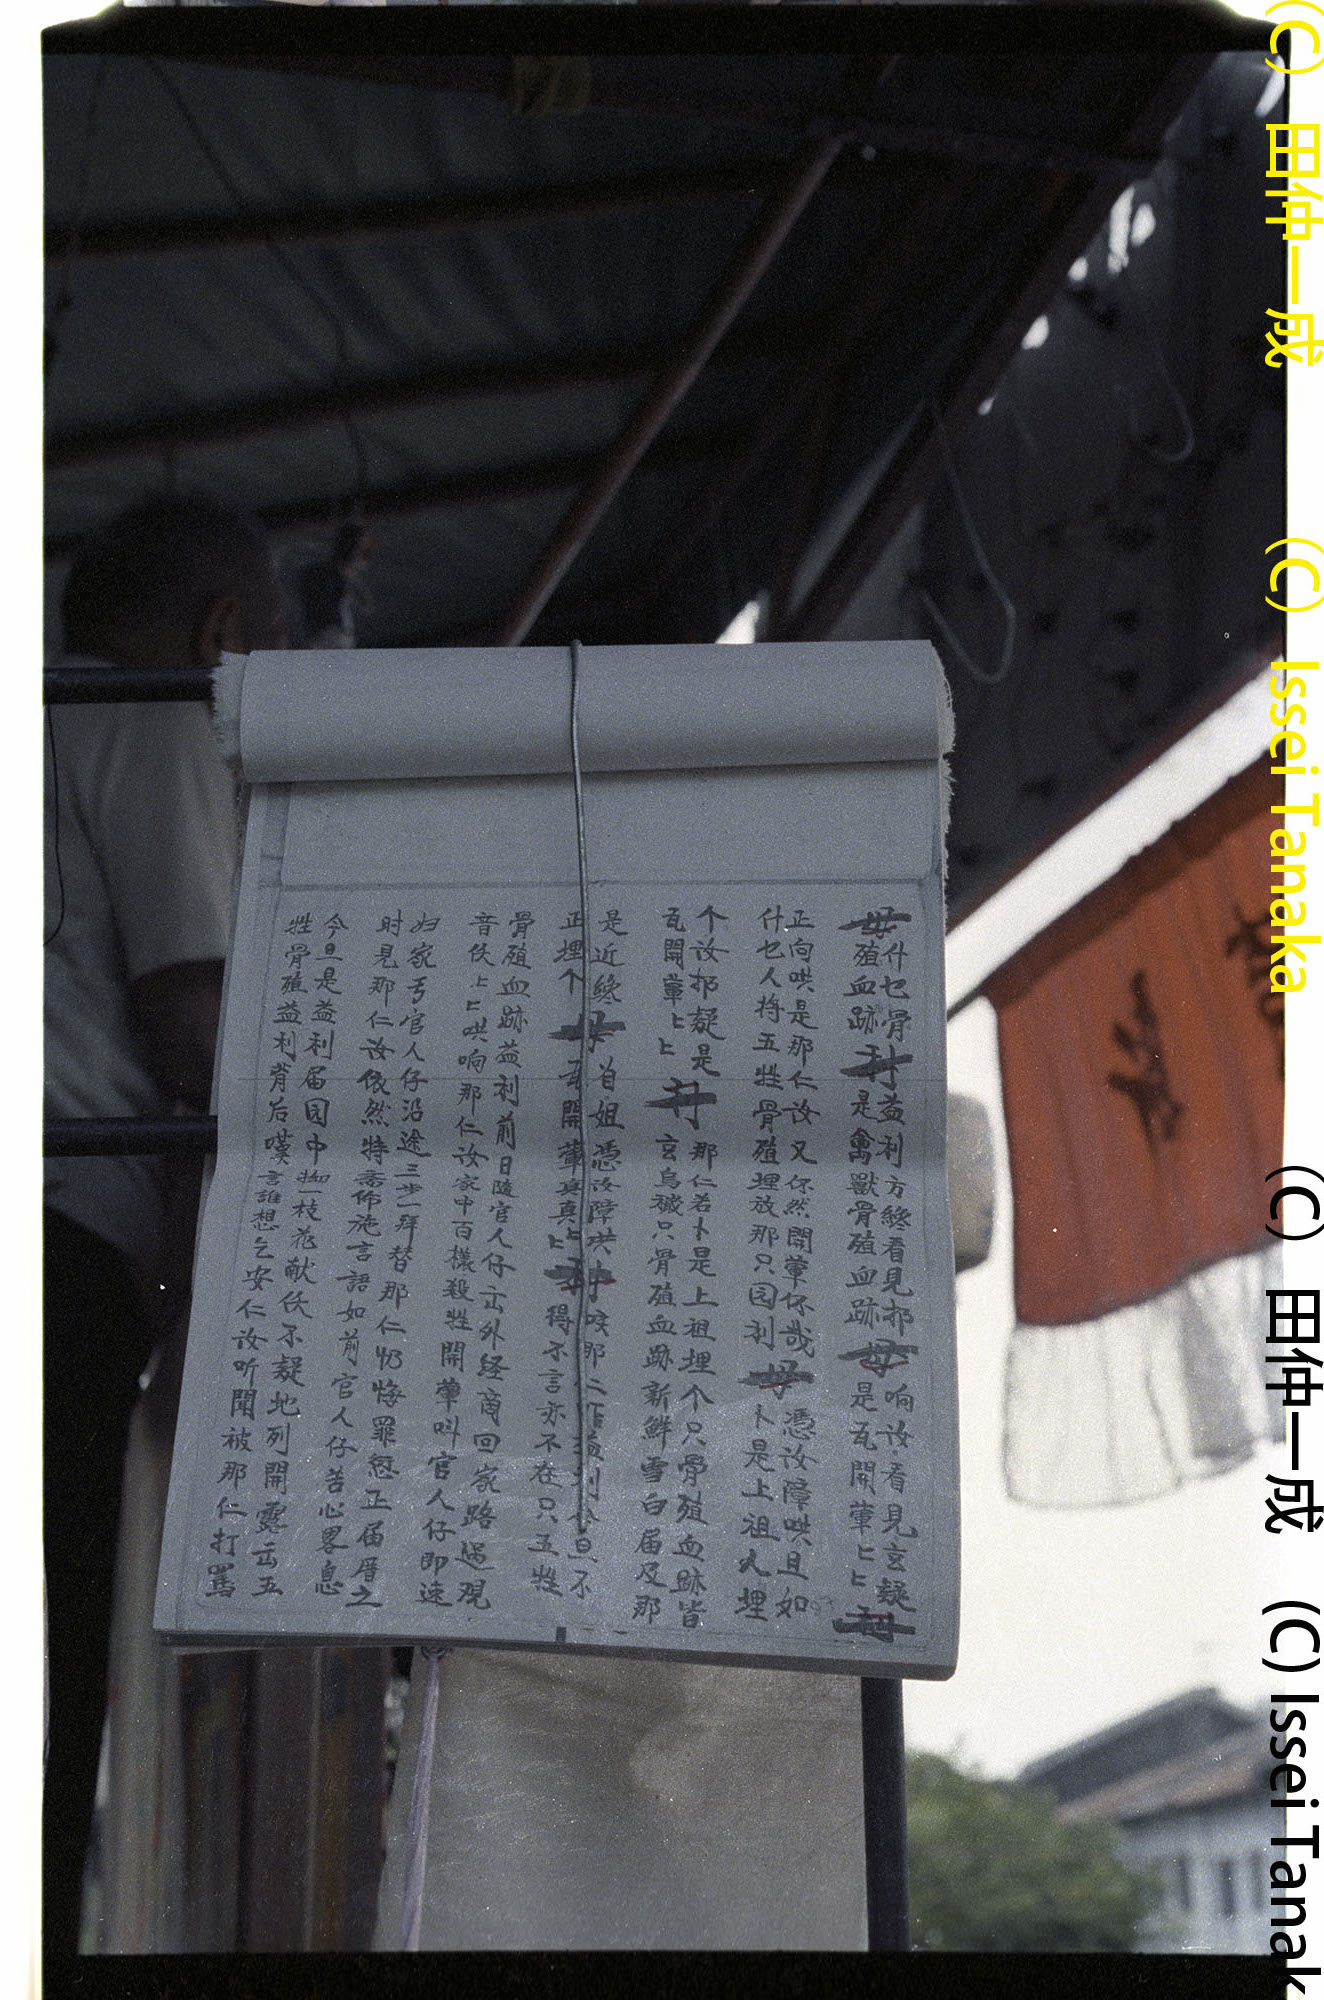 什乜骨利益利方纔看見那母响汝看見玄疑
母殖血跡利是禽獸骨殖血跡母是瓦開葷匕匕利
正向哄是那仁汝又你然開葷你哉憑汝障哄且如
什乜人将五牲骨殖埋放那只园利母卜是上祖人埋
个汝那疑是利那仁若卜是上祖埋个只骨殖血跡皆
瓦開葷匕匕玄烏穢只骨殖血跡新鮮雪白届及那
是近纔母首姐憑汝障哄利咳那仁益利今旦不
正埋个開葷真真匕匕得不言亦不在只五牲
骨殖血跡益利前日隨官人仔出外経商回家路過观
音伕上匕哄响那仁汝家中百樣殺牲開葷叫官人仔即速
妇家丐官人仔沿途三步一拜替那仁忏悔罪愆正届厝之
时見那仁汝依然特斋佈施言語如前官人仔苦心畧息
今旦是益利届园中一枝花献伕不疑地列開露出五
牲骨殖益利背后嘆言誰想乞安仁汝听聞被那仁打罵
(C) 田仲一成 (C) Issei Tanaka
(C) 田仲一成 (C) Issei Tanak